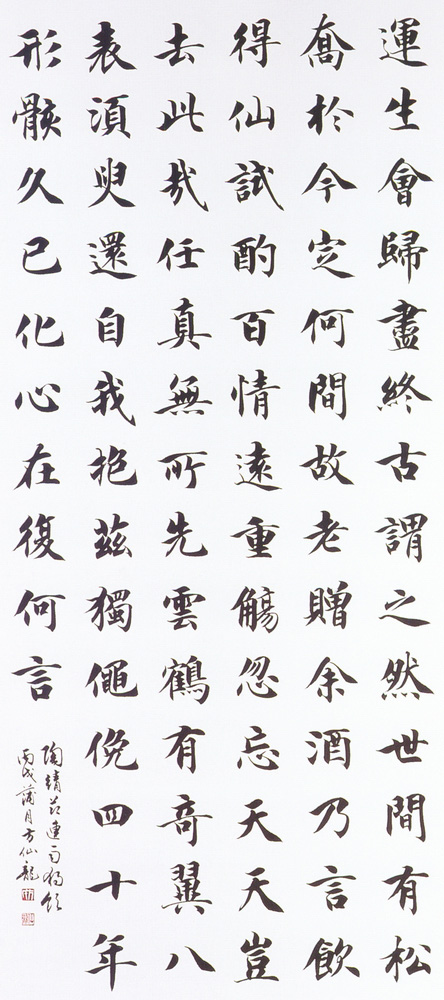 運生會歸盡終古謂之然世間有松
喬於今定何間故老贈余酒乃言飲
得仙試酌百情遠重觴忽忘天天豈
去此哉任真無所先雲鶴有奇翼八
表須臾還自我抱茲獨僶俛四十年
形骸久已化心在復何言
陶靖節連雨獨飲
丙戌蒲月方仙龍